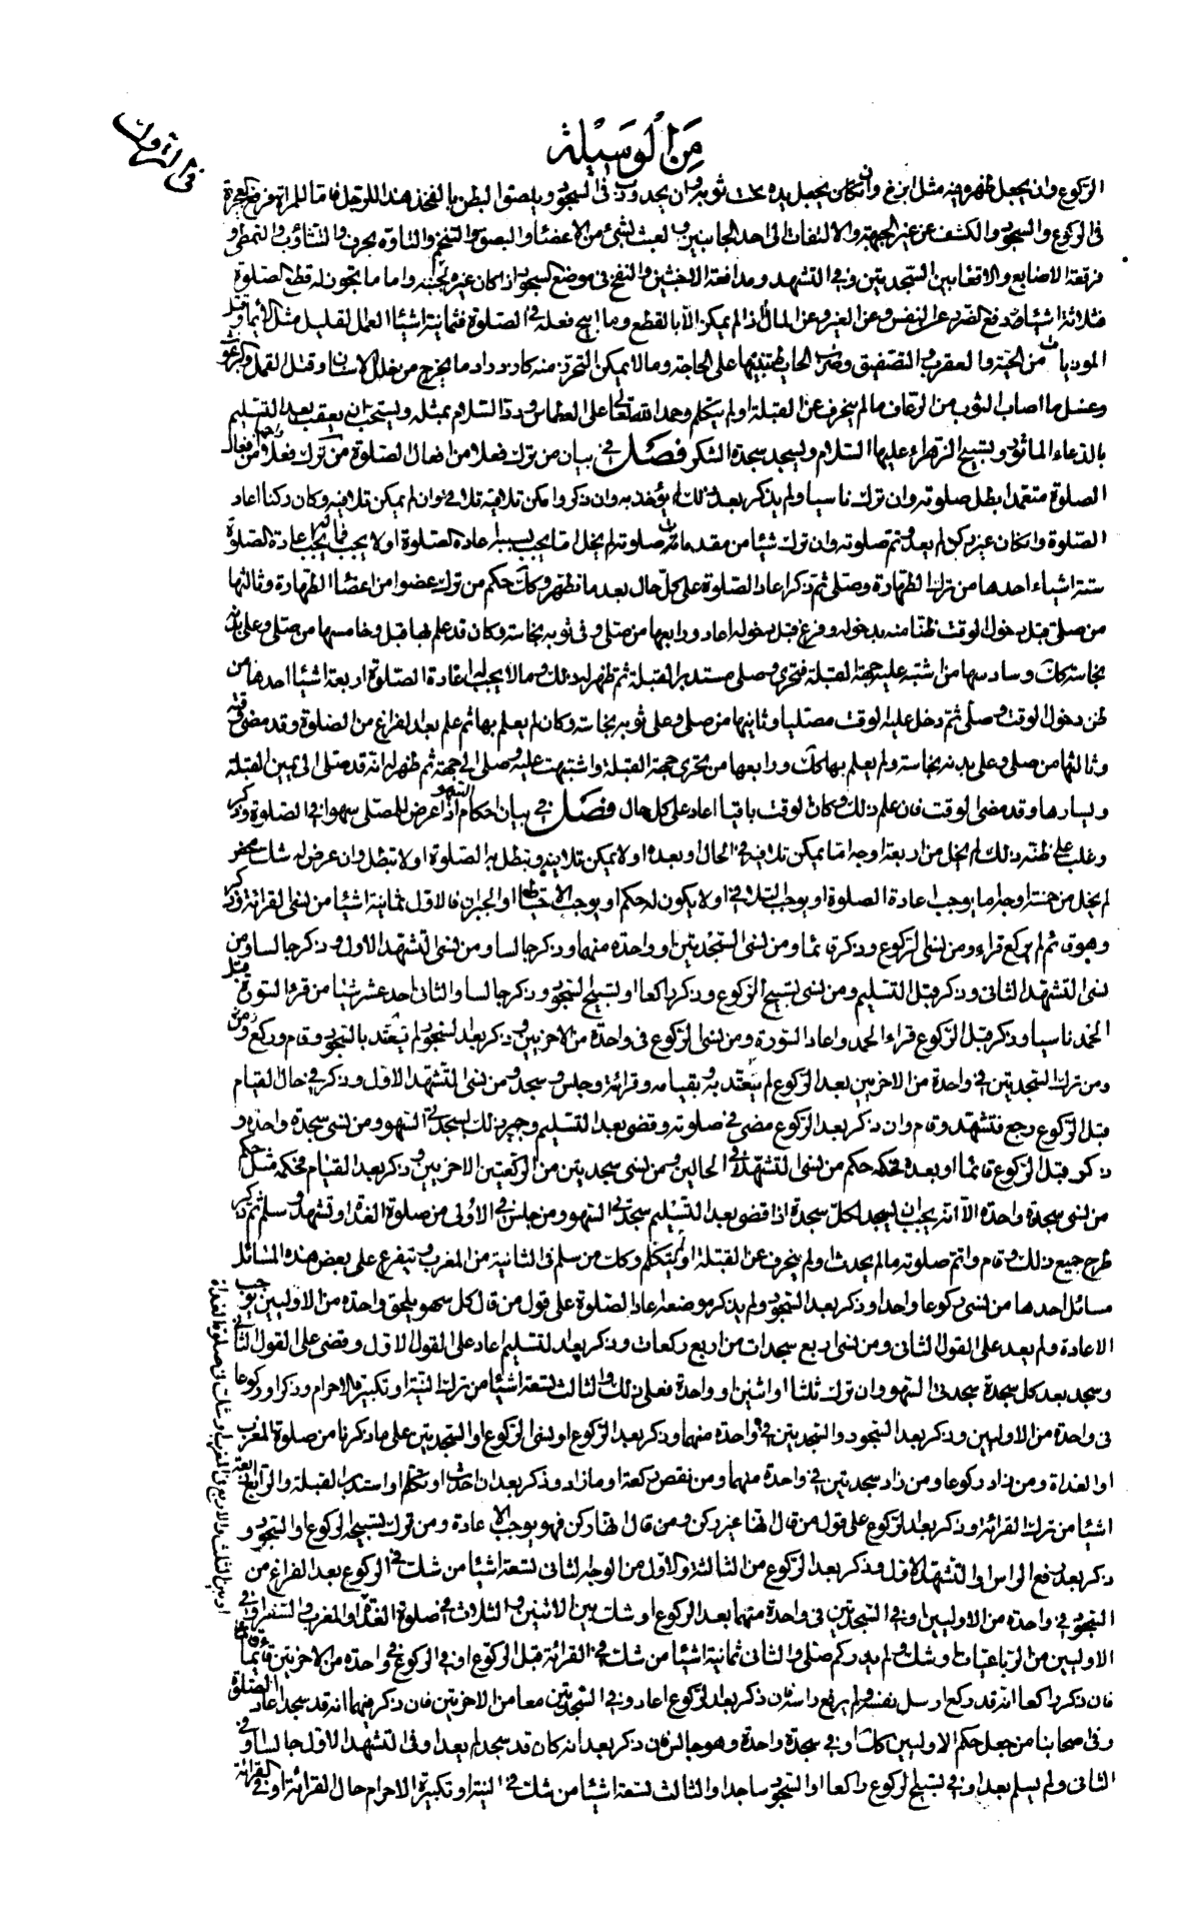 في التروك
من الوسيلة
الركوع وان يجعل ظهره فيه مثل ابزخ وان كان يجعل يده تحت ثوبه وان يحدودب في السجود ويلصق البطن بالفخذ هذا للرجل فاما للمراة فرض
في الركوع والسجود والكشف عن غير الجبهة والالتفات الى احد الجانبين والعبث بشئ من الاعضاء والبصق والتنخم والتاوه بحرف والتثاؤب والتمطي و
فرقعة الاصابع والاقعاء بين السجدتين وفي التشهد ومدافعة الاخبثين والنفخ في موضع السجود اذا كان غيره بجنبه واما ما يجوز له قطع الصلوة
فثلاثة اشياء دفع الضرر عن النفس وعن الغير وعن المال اذا لم يمكن الا بالقطع وما ابيح فعله في الصلوة فثمانية اشياء العمل القليل مثل الايماء وقتل
الموذيات من الحية والعقرب والتصفيق وضرب الحايط تنبيها على الحاجة وما لا يمكن التحرز منه كازدراد ما يخرج من خلل الاسنان وقتل القمل والبرغوث
وغسل ما اصاب الثوب من الرعاف ما لم ينحرف عن القبلة او لم يتكلم وحمد الله تعالى على العطاس ورد السلام بمثله ويستحب ان يعقب بعد التسليم
بالدعاء الماثور وتسبيح الزهراء عليها السلام ويسجد سجدة الشكر فصل في بيان من ترك فعلا من افعال الصلوة من ترك فعلا من افعال
الصلوة متعمدا بطل صلوته وان ترك ناسيا ولم يذكر بعد ذلك لم يؤخذ به وان ذكر وامكن تلافيه تلافى وان لم يمكن تلافيه وكان ركنا اعاد
الصلوة وان كان غير ركن لم يعد وتم صلوته وان ترك شيئا من مقدمات صلوته لم يخل مما يجب لسببه اعادة الصلوة اولا يجب فما يجب له اعادة الصلوة
ستة اشياء احدها من ترك الطهارة وصلى ثم ذكر اعاد الصلوة على كل حال بعد ما تطهر وكذلك حكم من ترك عضوا من اعضاء الطهارة وثالثها
من صلى قبل دخول الوقت ظنا منه بدخوله وفرغ قبل دخوله اعاد ورابعها من صلى وفي ثوبه نجاسة وكان قد علم بها قبل وخامسها من صلى وعلى بدنه
نجاسة كذلك وسادسها من اشتبه عليه جهة القبلة فتحرى وصلى مستدبر القبلة ثم ظهر له ذلك وما لا يجب له اعادة الصلوة اربعة اشياء احدها من
ظن دخول الوقت وصلى ثم دخل عليه الوقت مصليا وثانيها من صلى وعلى ثوبه نجاسة وكان لم يعلم بها ثم علم بعد الفراغ من الصلوة وقد مضى وقته
وثالثها من صلى وعلى بدنه نجاسة ولم يعلم بها كذلك ورابعها من تحرى جهة القبلة واشتبهت عليه وصلى الى جهة ثم ظهر له انه قد صلى الى يمين القبلة
ويسارها وقد مضى الوقت فان علم ذلك وكان الوقت باقيا اعاد على كل حال فصل في بيان احكام السهو اذا عرض للمصلي سهو في الصلوة وذكر
وغلب على ظنه ذلك لم يخل من اربعة اوجه اما يمكن تلافيه في الحال او بعده او لا يمكن تلافيه وتبطل به الصلوة او لا تبطل وان عرض له شك محض
لم يخل من خمسة اوجه اما يوجب اعادة الصلوة او يوجب التلافي او لا يكون له حكم او يوجب الاحتياط او الجبران فالاول ثمانية اشياء من نسي القرائة وذكر
وهو قائم لم يركع قراء ومن نسي الركوع وذكر قائما ومن نسي السجدتين او واحدة منهما وذكر جالسا ومن نسي التشهد الاول وذكر جالسا ومن
نسي التشهد الثاني وذكر قبل التسليم ومن نسي تسبيح الركوع وذكر راكعا او تسبيح السجود وذكر ساجدا والثاني احد عشر شيئا من قرء السورة قبل
الحمد ناسيا وذكر قبل الركوع قراء الحمد واعاد السورة ومن نسي الركوع في واحدة من الاخريين وذكر بعد السجود لم يعتد بالسجود وقام وركع
ومن ترك السجدتين في واحدة من الاخريين بعد الركوع لم يعتد به وبقيامه وقرائة وجلس وسجد ومن نسي التشهد الاول وذكر في حال القيام
قبل الركوع رجع فتشهد وقام وان ذكر بعد الركوع مضى في صلوته وقضى بعد التسليم وجبر ذلك بسجدتي السهو ومن نسي سجدة واحدة و
ذكر قبل الركوع قائما او بعده فحكمه حكم من نسي التشهد في الحالين ومن نسي سجدتين من الركعتين الاخريين وذكر بعد القيام فحكمه مثل حكم
من نسي سجدة واحدة الا انه يجب ان يسجد لكل سجدة اذا قضى بعد التسليم سجدتي السهو ومن جلس في الاولى من صلوة الغداة وتشهد وسلم ثم ذكر
طرح جميع ذلك وقام واتم صلوته ما لم يحدث او لم ينحرف عن القبلة او لم يتكلم وكذلك من سلم في الثانية من المغرب ويتفرع على بعض هذه المسائل
مسائل احدها من نسي ركوعا واحدا وذكر بعد السجود ولم يذكر موضعه اعاد الصلوة على قول من قال كل سهو يلحق واحدة من الاوليين يوجب
الاعادة ولم يعد على القول الثاني ومن نسي اربع سجدات من اربع ركعات وذكر بعد التسليم اعاد على القول الاول وقضى على القول الثاني
وسجد بعد كل سجدة سجدتي السهو وان ترك ثلثا او اثنين او واحدة فعلى ذلك والثالث تسعة اشياء من ترك النية او تكبيرة الاحرام وذكر او ركوعا
في واحدة من الاوليين وذكر بعد السجود والسجدتين في واحدة منهما وذكر بعد الركوع او نسي الركوع او السجدتين على ما ذكرنا من صلوة المغرب
او الغداة ومن زاد ركوعا ومن زاد سجدتين في واحدة منهما ومن نقص ركعة او ما زاد وذكر بعد ان احدث او تكلم او استدبر القبلة والرابع اربعة
اشياء من ترك القرائة وذكر بعد الركوع على قول من قال انها غير ركن ومن قال انها ركن فهو يوجب الاعادة ومن ترك تسبيح الركوع او السجود و
ذكر بعد رفع الراس او التشهد الاول وذكر بعد الركوع من الثالثة والاول من الوجه الثاني تسعة اشياء من شك في الركوع بعد الفراغ من
السجود في واحدة من الاوليين او في السجدتين في واحدة منهما بعد الركوع او شك بين الاثنين والثلاث في صلوة الغداة والمغرب والسفر او في
الاوليين من الرباعيات او شك ولم يدر كم صلى والثاني ثمانية اشياء من شك في القرائة قبل الركوع او في الركوع في واحدة من الاخريتين قائما
فان ذكر راكعا انه قد ركع ارسل نفسه ولم يرفع راسه فان ذكر بعد الركوع اعاد وفي السجدتين معا من الاخريتين فان ذكر فيهما انه قد سجد اعاد الصلوة
وفي اصحابنا من جعل حكم الاوليين كذلك او في سجدة واحدة وهو جالس فان ذكر بعد انه كان قد سجد لم يعد او في التشهد الاول جالسا او في
الثاني ولم يسلم بعد او في تسبيح الركوع راكعا او السجود ساجدا والثالث تسعة اشياء من شك في النية او تكبيرة الاحرام حال القرائة او في القرائة
او بين الثلث والاربع في المغرب او شك في صلوة الغداة